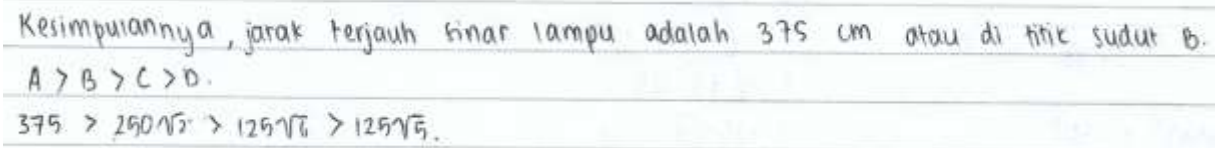 Kesimpulannya, jarak terjauh sinar lampu adalah 375 cm atau di titik sudut B.
A > B > C > D.
375 > 250√2 > 125√6 > 125√5.